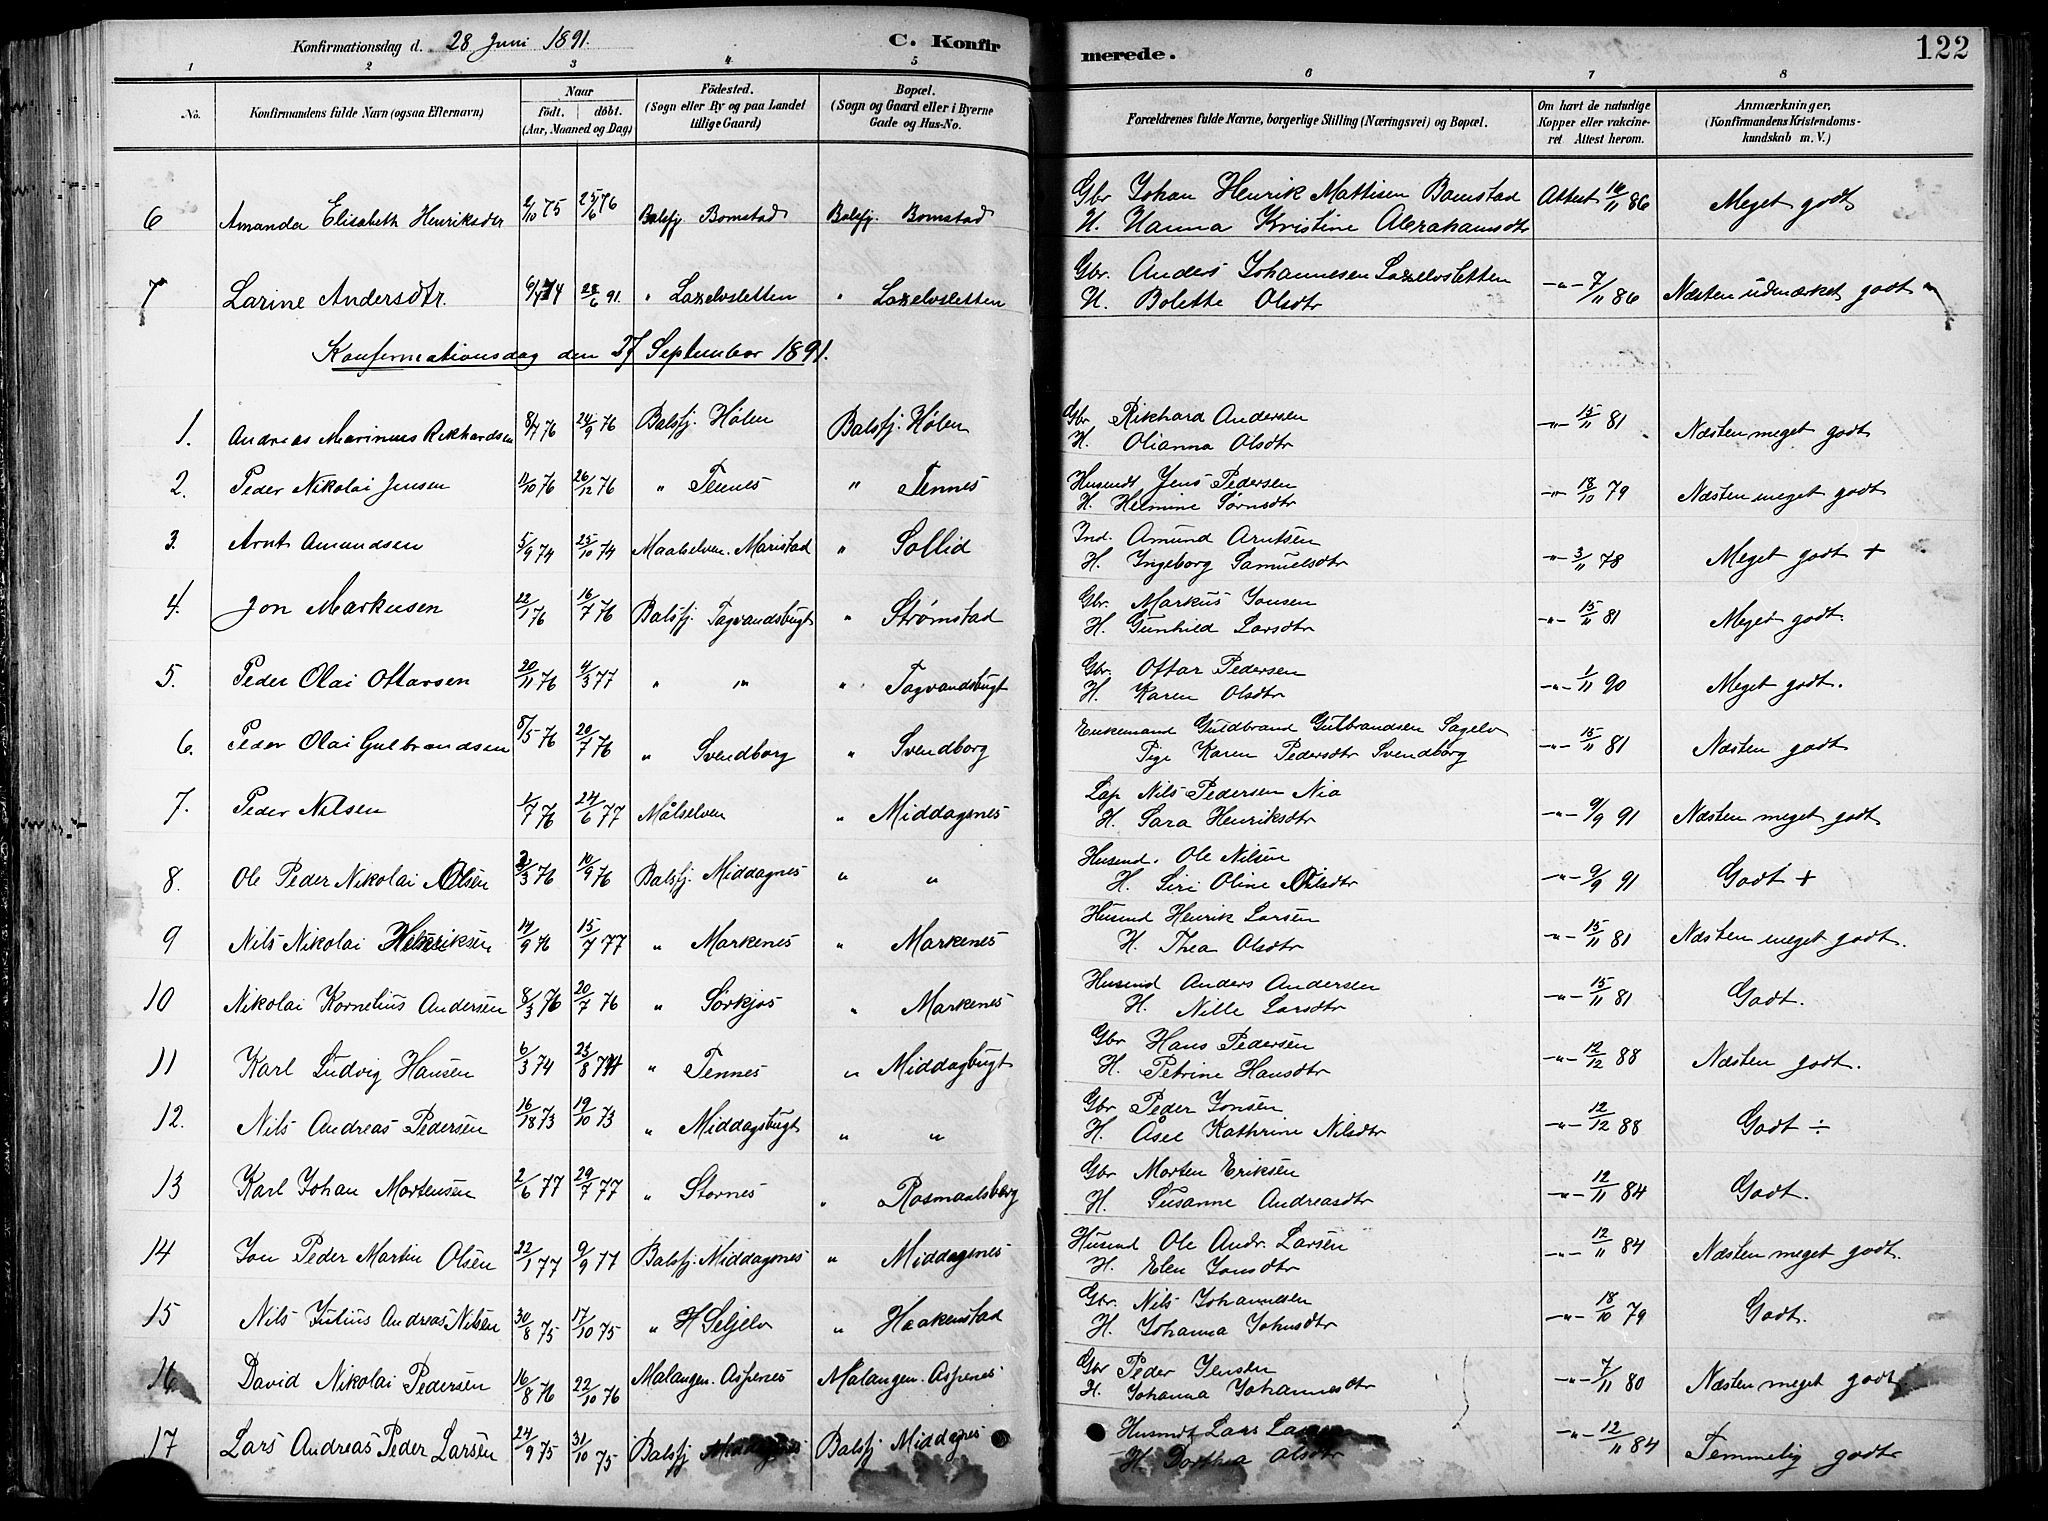 Konfirmationsdag d. 28 Juni 1891. C. Konfirmerede. 122
1 2 3 4 5 6 7 8
No. Konfirmandens fulde Navn (ogsaa Efternavn) Naar født. døbt. (Aar, Maaned og Dag) Födested. (Sogn eller By og paa Landet tillige Gaard) Bopæl. (Sogn og Gaard eller i Byerne Gade og Hus-No. Forældrenes fulde Navne, borgerlige Stilling (Næringsvei) og Bopæl. Om havt de naturlige Kopper eller vakcineret Attest herom. Anmærkninger. (Konfirmandens Kristendomskundskab m. V.)
6 Amanda Elisabeth Henriksdtr 2/10 75 25/6 76 Balsfj Bomstad Balsfj. Bomstad Gbr Johan Henrik Mattisen Bomstad Attest 16/11 86 Meget godt
H. Hanna Kristine Abrahamsdtr
7 Larine Andersdtr. 6/4 74 28/6 91. " Laxelvsletten " Laxelvsletten Gbr. Anders Johannesen Laxelvsletten -"- 7/11 86 Næsten udmærket godt
H. Bolette Olsdtr
Konfirmationsdag den 27 September 1891.
1. Andreas Marinus Rikhardsen 8/7 76 24/9 76 Balsfj. Hølen Balsfj. Hølen Gbr Rikhard Andersen -"- 15/11 81 Næsten meget godt
H. Olianna Olsdtr
2. Peder Nikolai Jensen 11/10 76 26/12 76 " Tennes " Tennes Husmdt Jens Pedersen -"- 18/10 79 Næsten meget godt
H. Helmine Sørnsdtr
3. Arnt Amundsen 5/9 74 25/10 74 Maalselven. Maristad " Sollid Ind. Amund Arntsen -"- 3/11 78 Meget godt +
H. Ingeborg Samuelsdtr
4. Jon Markusen 22/1 76 16/7 76 Balsfj. Tagvandsbugt " Strømstad Gbr. Markus Jonsen -"- 15/11 81 Meget godt.
H. Gunhild Larsdtr
5. Peder Olai Ottarsen 20/11 76 4/3 77 " " " Tagvandsbugt Gbr. Ottar Pedersen -"- 1/11 90 Meget godt.
H. Karen Olsdtr
6. Peder Olai Gulbrandsen 8/5 76 20/7 76 " Svendborg " Svendborg Enkemand Guldbrand Gulbrandsen Sagelv -"- 15/11 81 Næsten godt
Pige Karen Pedersdtr Svendborg
7. Peder Nilsen 1/7 76 24/6 77 Målselven " Middagsnes Lap Nils Pedersen Nia -"- 9/9 91 Næsten meget godt
H. Sara Henriksdtr
8. Ole Peder Nikolai Olsen 2/3 76 10/9 76 Balsfj. Middagnes " " Husmd. Ole Nilsen -"- 9/9 91 Godt +
H. Siri Oline Olsdtr
9 Nils Nikolai Henriksen 14/9 76 15/7 77 " Markenes " Markenes Husmd Henrik Larsen -"- 15/11 81 Næsten meget godt.
H. Thea Olsdtr
10 Nikolai Kornelius Andersen 8/3 76 20/7 76 " Sørkjos " Markenes Husmd Anders Andersen -"- 15/11 81 Godt.
H. Nille Larsdtr
11 Karl Ludvig Hansen 6/3 74 23/8 74 " Tennes " Middagbugt Gbr Hans Pedersen -"- 12/12 88 Næsten godt.
H. Petrine Hansdtr
12. Nils Andreas Pedersen 16/18 73 19/10 73 " Middagsbugt " " Gbr Peder Jonsen -"- 12/12 88 Godt ÷
H. Åsel Kathrine Nilsdtr
13 Karl Johan Mortensen 2/6 77 29/7 77 " Stornes " Rosmaalsberg Gbr Morten Eriksen -"- 12/11 84 Godt.
H. Susanne Andreasdtr
14 Jon Peder Martin Olsen 22/1 77 9/9 77 Balsfj. Middagsnes " Middagsnes Husmd Ole Andr. Larsen -"- 12/11 84 Næsten meget godt.
H. Elen Jonsdtr
15 Nils Julius Andreas Nilsen 30/8 75 17/10 75 " H Seljelv " Haakenstad Gbr. Nils Johannesen -"- 18/10 79 Godt.
H. Johanna Johnsdtr
16 David Nikolai Pedersen 16/8 76 22/10 76 Malangen. Aspenes Malangen. Aspenes Gbr Peder Jensen -"- 7/11 80 Næsten meget godt
H. Johanna Johannesdtr
17 Lars Andreas Peder Larsen 24/9 75 31/10 75 Balsfj Middagnes Balsfj Middagnes Husmdt Lars Larsen -"- 12/11 84 Temmelig godt
H. Dorthea Olsdtr